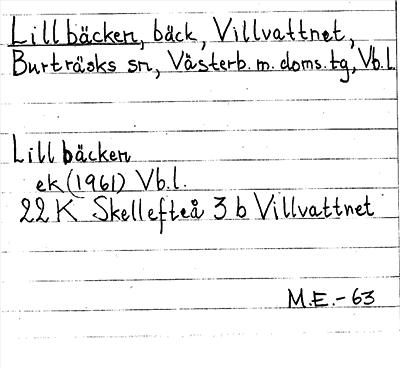 Lillbäcken, bäck, Villvattnet,
Burträsks sn, Västerb. m. doms. tg, Vb.l.
Lillbäcken
ek (1961) Vb.l.
22 K Skellefteå 3 b Villvattnet
M.E. - 63